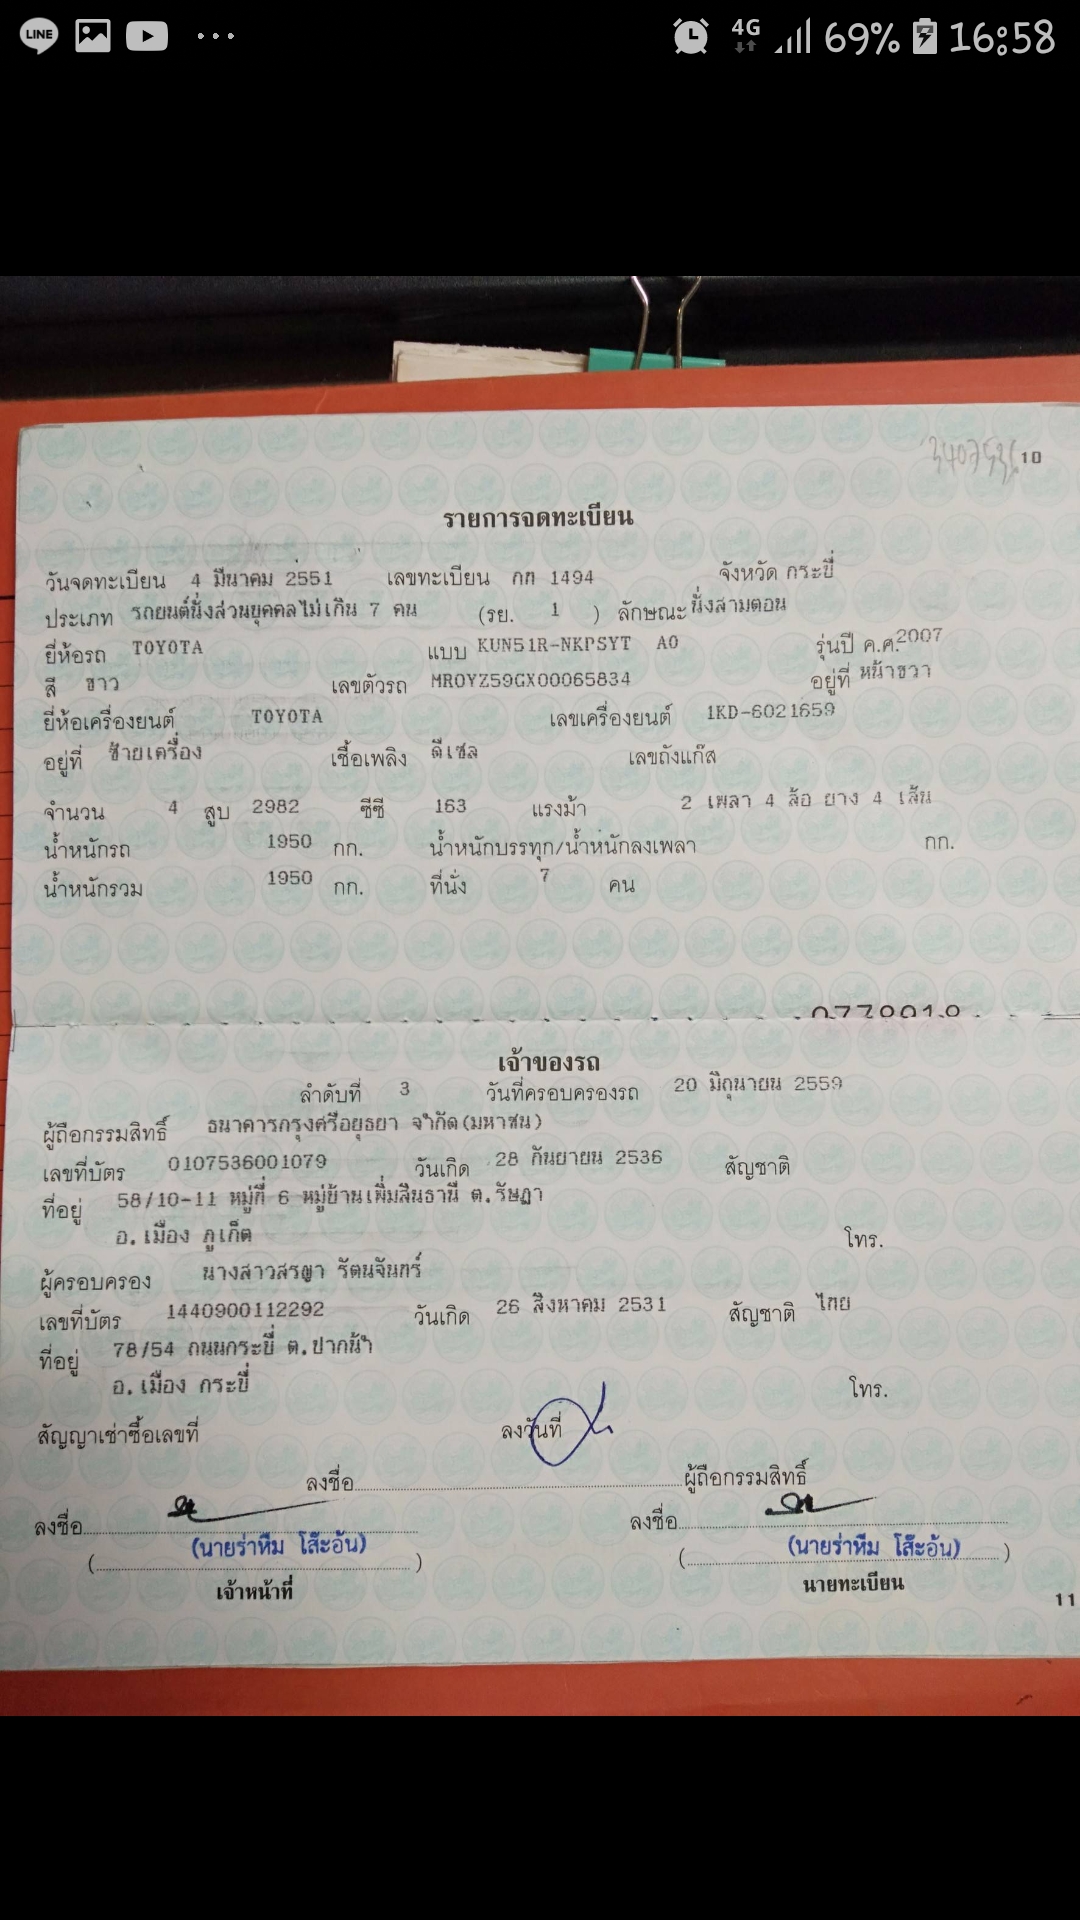 LINE 4G 69% 16:58
10
รายการจดทะเบียน
วันจดทะเบียน 4 มีนาคม 2551 เลขทะเบียน กท 1494 จังหวัด กระบี่
ประเภท รถยนต์นั่งส่วนบุคคลไม่เกิน 7 คน (รย. 1 ) ลักษณะ นั่งสามตอน
ยี่ห้อรถ TOYOTA แบบ KUN51R-NKPSYT A0 รุ่นปี ค.ศ. 2007
สี ขาว เลขตัวรถ MR0YZ59GX00065834 อยู่ที่ หน้าขวา
ยี่ห้อเครื่องยนต์ TOYOTA เลขเครื่องยนต์ 1KD-6021659
อยู่ที่ ซ้ายเครื่อง เชื้อเพลิง ดีเซล เลขถังแก๊ส
จำนวน 4 สูบ 2982 ซีซี 163 แรงม้า 2 เพลา 4 ล้อ ยาง 4 เส้น
น้ำหนักรถ 1950 กก. น้ำหนักบรรทุก/น้ำหนักลงเพลา กก.
น้ำหนักรวม 1950 กก. ที่นั่ง 7 คน
เจ้าของรถ
ลำดับที่ 3 วันที่ครอบครองรถ 20 มิถุนายน 2559
ผู้ถือกรรมสิทธิ์ ธนาคารกรุงศรีอยุธยา จำกัด(มหาชน)
เลขที่บัตร 0107536001079 วันเกิด 28 กันยายน 2536 สัญชาติ
ที่อยู่ 58/10-11 หมู่ที่ 6 หมู่บ้านเพิ่มสินธานี ต.รัษฎา
อ.เมือง ภูเก็ต โทร.
ผู้ครอบครอง นางสาวสรญา รัตนจันทร์
เลขที่บัตร 1440900112292 วันเกิด 26 สิงหาคม 2531 สัญชาติ ไทย
ที่อยู่ 78/54 ถนนกระบี่ ต.ปากน้ำ
อ.เมือง กระบี่ โทร.
สัญญาเช่าซื้อเลขที่ ลงวันที่
ลงชื่อ ผู้ถือกรรมสิทธิ์
ลงชื่อ ลงชื่อ
(นายร่าหีม โส๊ะอ้น) (นายร่าหีม โส๊ะอ้น)
เจ้าหน้าที่ นายทะเบียน
11